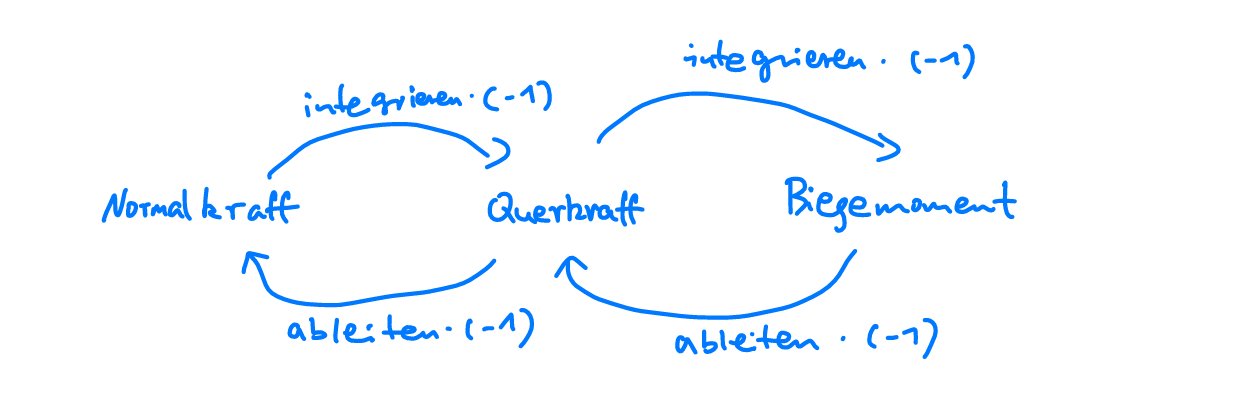 integrieren · (-1)
integrieren · (-1)
Normalkraft
Querkraft
Biegemoment
ableiten · (-1)
ableiten · (-1)